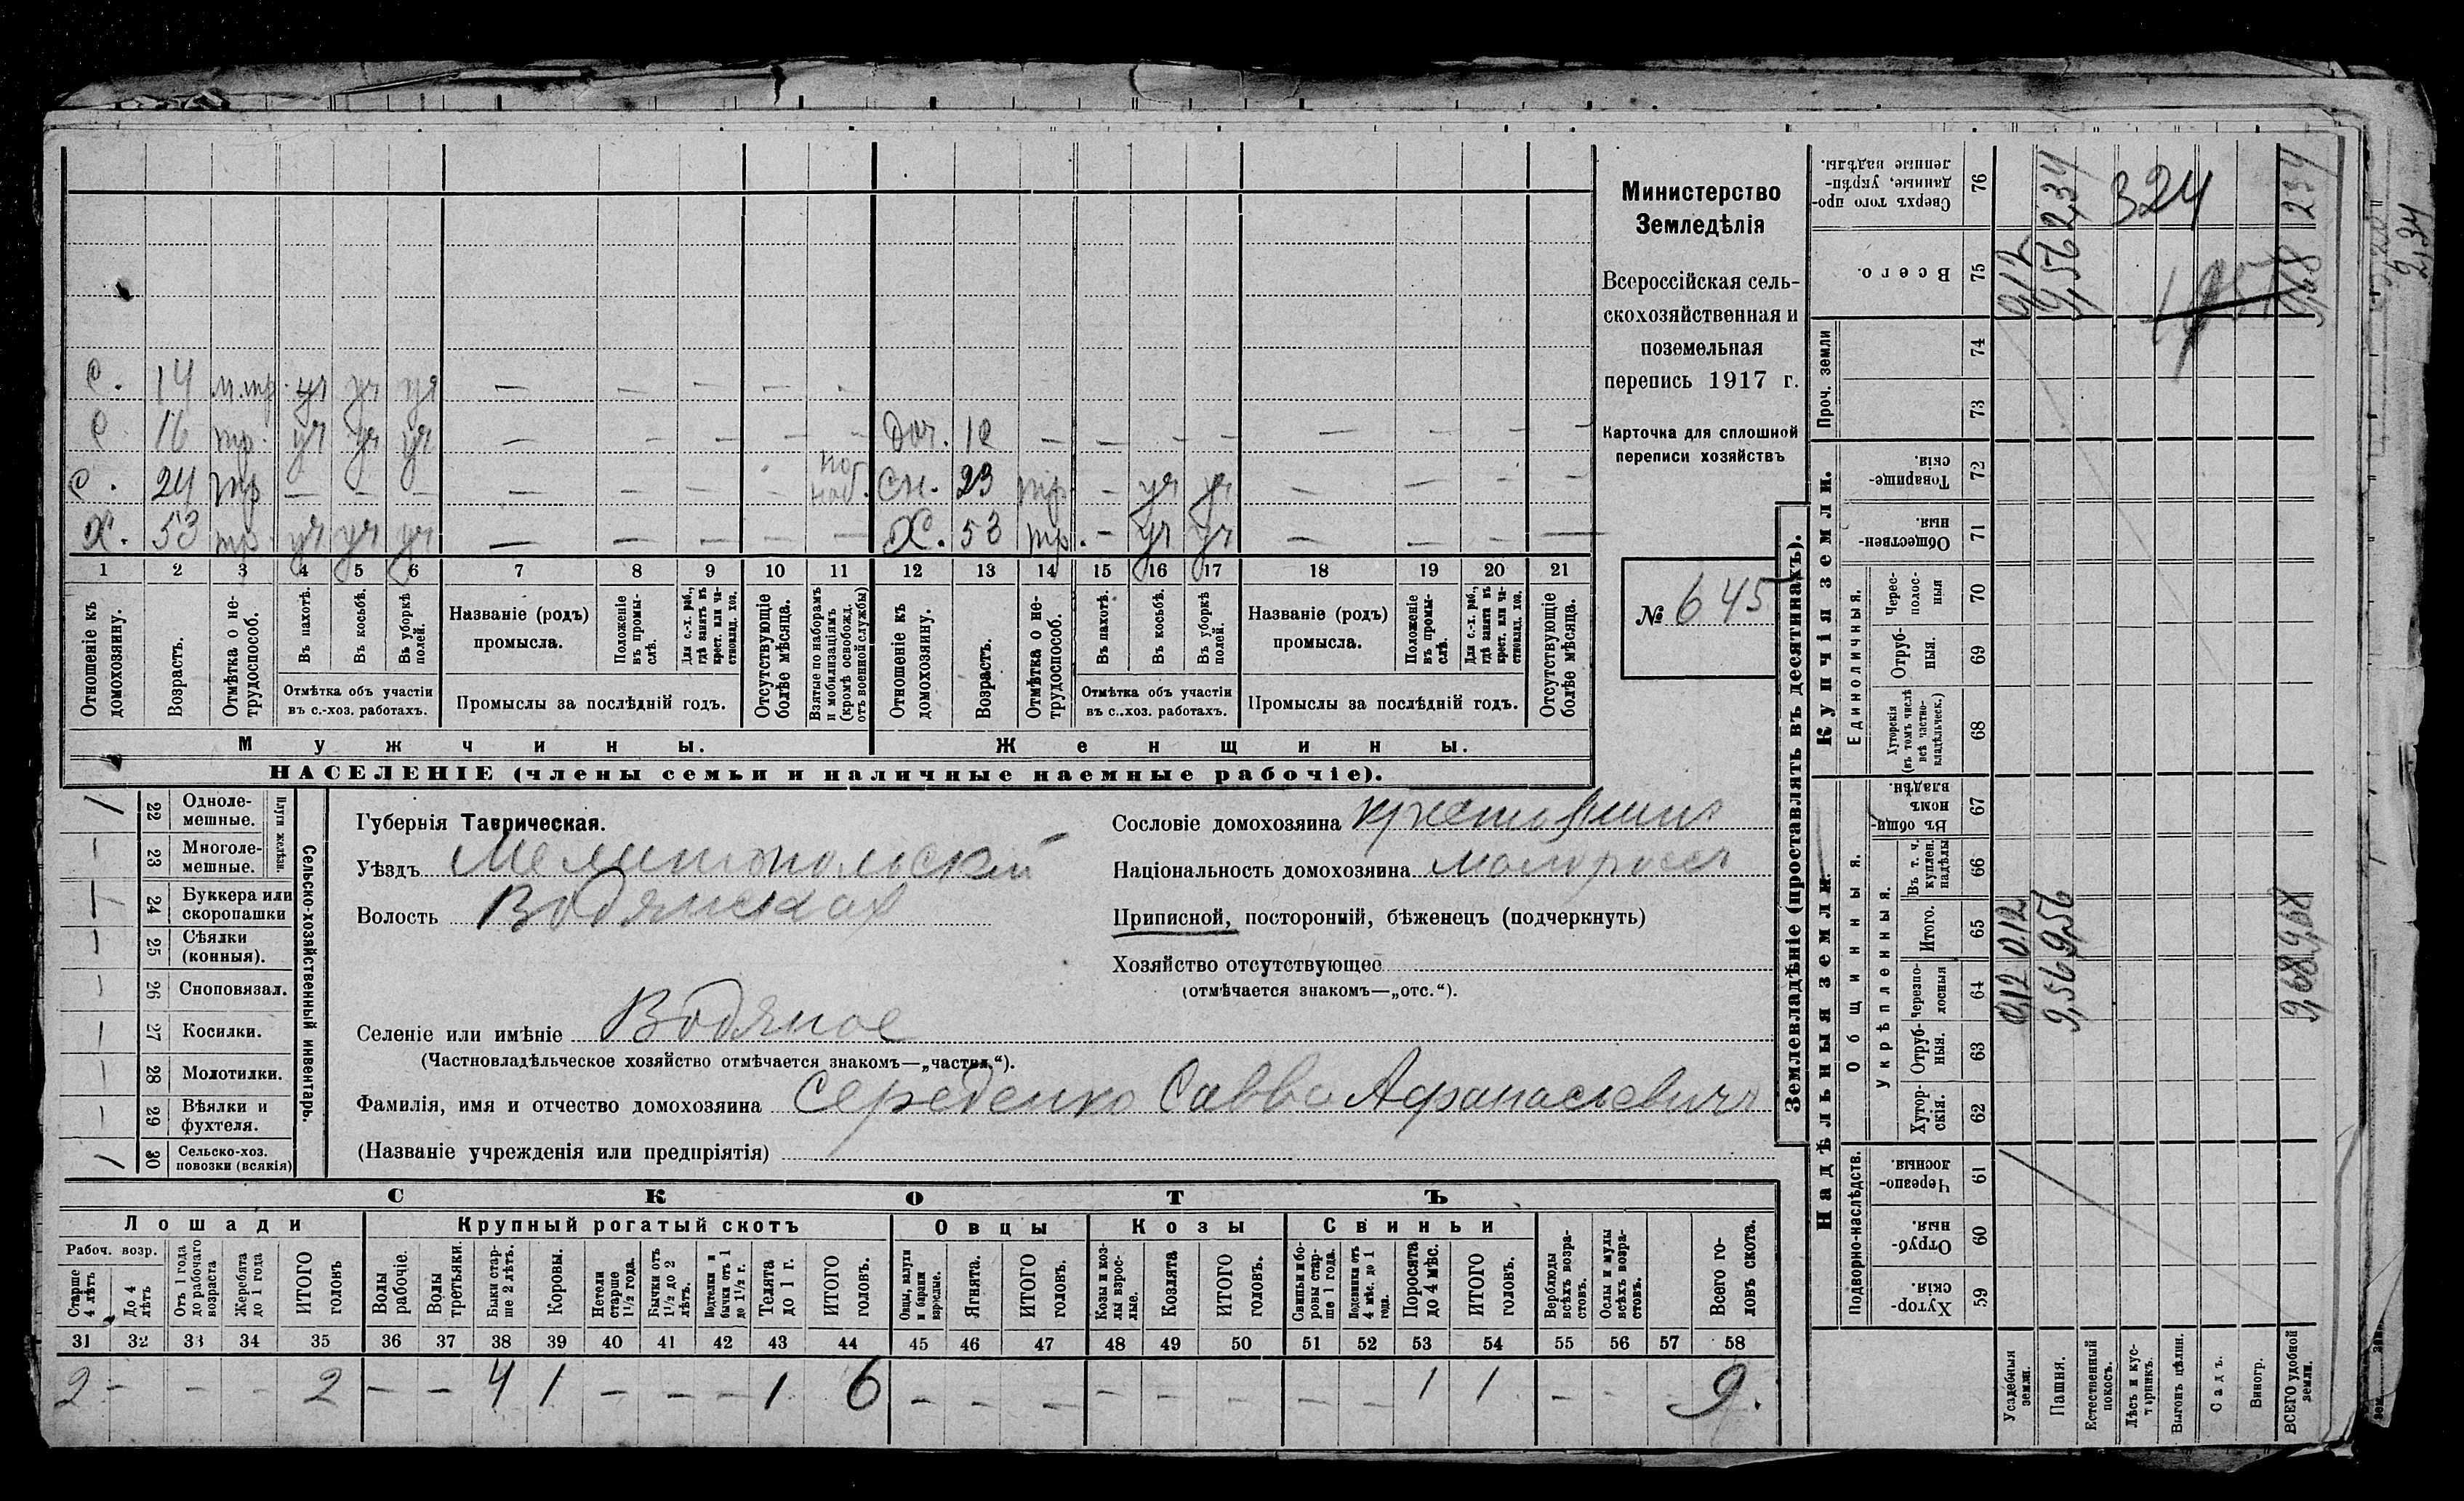 Министерство
Земледѣлія
Всероссійская сель-
скохозяйственная и
поземельная
перепись 1917 г.
Карточка для сплошной
переписи хозяйствъ
№ 645
С. 14 м.тр. уч уч уч — — — — -
С 16 тр. уч уч уч — — — — — Доч. 12 — — — — — — — —
С. 24 тр — — — — — — - по наб. Сн. 23 тр. - уч уч — — - —
Х. 53 тр. уч уч уч — — — — — Х. 53 тр. - уч уч — — — —
1 2 3 4 5 6 7 8 9 10 11 12 13 14 15 16 17 18 19 20 21
Отношеніе къ домохозяину.
Возрастъ.
Отмѣтка о не-трудоспособ.
Въ пахотѣ.
Въ косьбѣ.
Въ уборкѣ полей.
Отмѣтка объ участіи
въ с.-хоз. работахъ.
Названіе (родъ)
промысла.
Положеніе въ промы-слѣ.
Для с.-х. раб., гдѣ занятъ въ крест. или ча-стновлад. хоз.
Промыслы за послѣдній годъ.
Отсутствующіе болѣе мѣсяца.
Взятые по наборамъ и мобилизаціямъ (кромѣ освобожд. отъ военной службы)
Отношеніе къ домохозяину.
Возрастъ.
Отмѣтка о не-трудоспособ.
Въ пахотѣ.
Въ косьбѣ.
Въ уборкѣ полей.
Отмѣтка объ участіи
въ с..хоз. работахъ.
Названіе (родъ)
промысла.
Положеніе въ промы-слѣ.
Для с.-х. раб., гдѣ занятъ въ крест. или ча-стновлад. хоз.
Промыслы за послѣдній годъ.
Отсутствующіе болѣе мѣсяца.
Мужчины. Женщины.
НАСЕЛЕНІЕ (члены семьи и наличные наемные рабочіе).
Сельско-хозяйственный инвентарь.
Плуги желѣзн.
22 Одноле-мешные.
23 Многоле-мешные.
24 Буккера или скоропашки
25 Сѣялки (конныя).
26 Сноповязал.
27 Косилки.
28 Молотилки.
29 Вѣялки и фухтеля.
30 Сельско-хоз. повозки (всякія)
Губернія Таврическая.
Уѣздъ Мелитопольскій
Волость Водянская
Селеніе или имѣніе Водяное
(Частновладѣльческое хозяйство отмѣчается знакомъ—„частвл.“).
Фамилія, имя и отчество домохозяина Середенко Савва Афанасьевичъ
(Названіе учрежденія или предпріятія)
Сословіе домохозяина крестьянинъ
Національность домохозяина малороссъ
Приписной, посторонній, бѣженецъ (подчеркнуть)
Хозяйство отсутствующее
(отмѣчается знакомъ—„отс.“).
СКОТЪ
Лошади Крупный рогатый скотъ Овцы Козы Свиньи
Рабоч. возр.
Старше 4 лѣтъ
До 4 лѣтъ
Отъ 1 года до рабочаго возраста
Жеребята до 1 года
ИТОГО головъ
Волы рабочіе.
Волы третьяки.
Быки стар-ше 2 лѣтъ.
Коровы.
Нетели старше 1½ года.
Бычки отъ 1½ до 2 лѣтъ.
Подтелки и бычки отъ 1 до 1½ г.
Телята до 1 г.
ИТОГО головъ.
Овцы, валухи и бараны взрослые.
Ягнята.
ИТОГО головъ.
Козы и коз-лы взрос-лые.
Козлята
ИТОГО головъ.
Свиньи и бо-ровы стар-ше 1 года.
Подсвинки отъ 4 мѣс. до 1 года.
Поросята до 4 мѣс.
ИТОГО головъ.
Верблюды всѣхъ возра-стовъ.
Ослы и мулы всѣхъ возра-стовъ.
Всего го-ловъ скота.
31 32 33 34 35 36 37 38 39 40 41 42 43 44 45 46 47 48 49 50 51 52 53 54 55 56 57 58
2 - - - 2 — — 4 1 — — — 1 6 — — — — — — — — 1 1 — - 9.
Землевладѣніе (проставлять въ десятинахъ).
Надѣльныя земли
Купчія земли.
Проч. земли
Подворно-наслѣдств.
Общинныя.
Укрѣпленныя.
Единоличныя.
Сверхъ того про-данные, укрѣп-ленные надѣлы. 76
Всего. 75
74
73
Товарище-скія. 72
Обществен-ныя. 71
Черес-полос-ныя 70
Отруб-ныя. 69
Хуторскія (въ томъ числѣ всѣ частно-владѣльческ.) 68
Въ общи-номъ владѣн. 67
Въ т. ч. куплен. надѣлы 66
Итого. 65
Черезпо-лосныя 64
Отруб-ныя. 63
Хутор-скія. 62
Черезпо-лосныя 61
Отруб-ныя. 60
Хутор-скія 59
Усадебныя земли. 0,12 0,12 0,12
Пашня. 9,56 9,56 9,56 2,34
Естественный покосъ.
Лѣсъ и кус-тарникъ.
Выгонъ цѣлин.
Садъ.
Виногр.
ВСЕГО удобной земли. 9,68 9,68 9,68 2 34
324
2,34